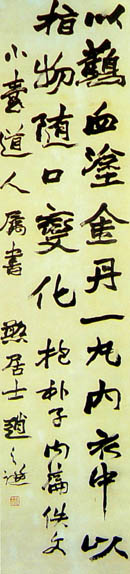 以鸛血塗金丹一丸內衣中以
指物隨口變化 抱朴子內篇佚文
小臺道人屬書 㒳居士趙之謙